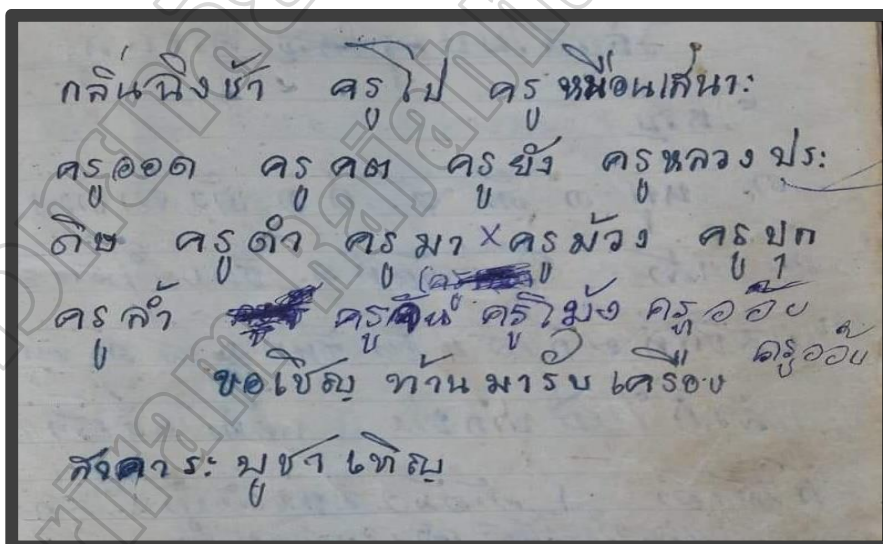 กลิ่นฉิ่งช้า ครูไป ครูหมื่อนเสนาะ
ครูออด ครูคต ครูยัง ครูหลวงประ
ดิษ ครูดำ ครูมา × ครูม้วง ครูปุก
(ครู
ครูล้ำ ครูจัน ครูโม้ง ครูออัย
ครูออัย
ขอเชิญ ท่านมารับ เครื่อง
สาคาระ บูชา เทิญ